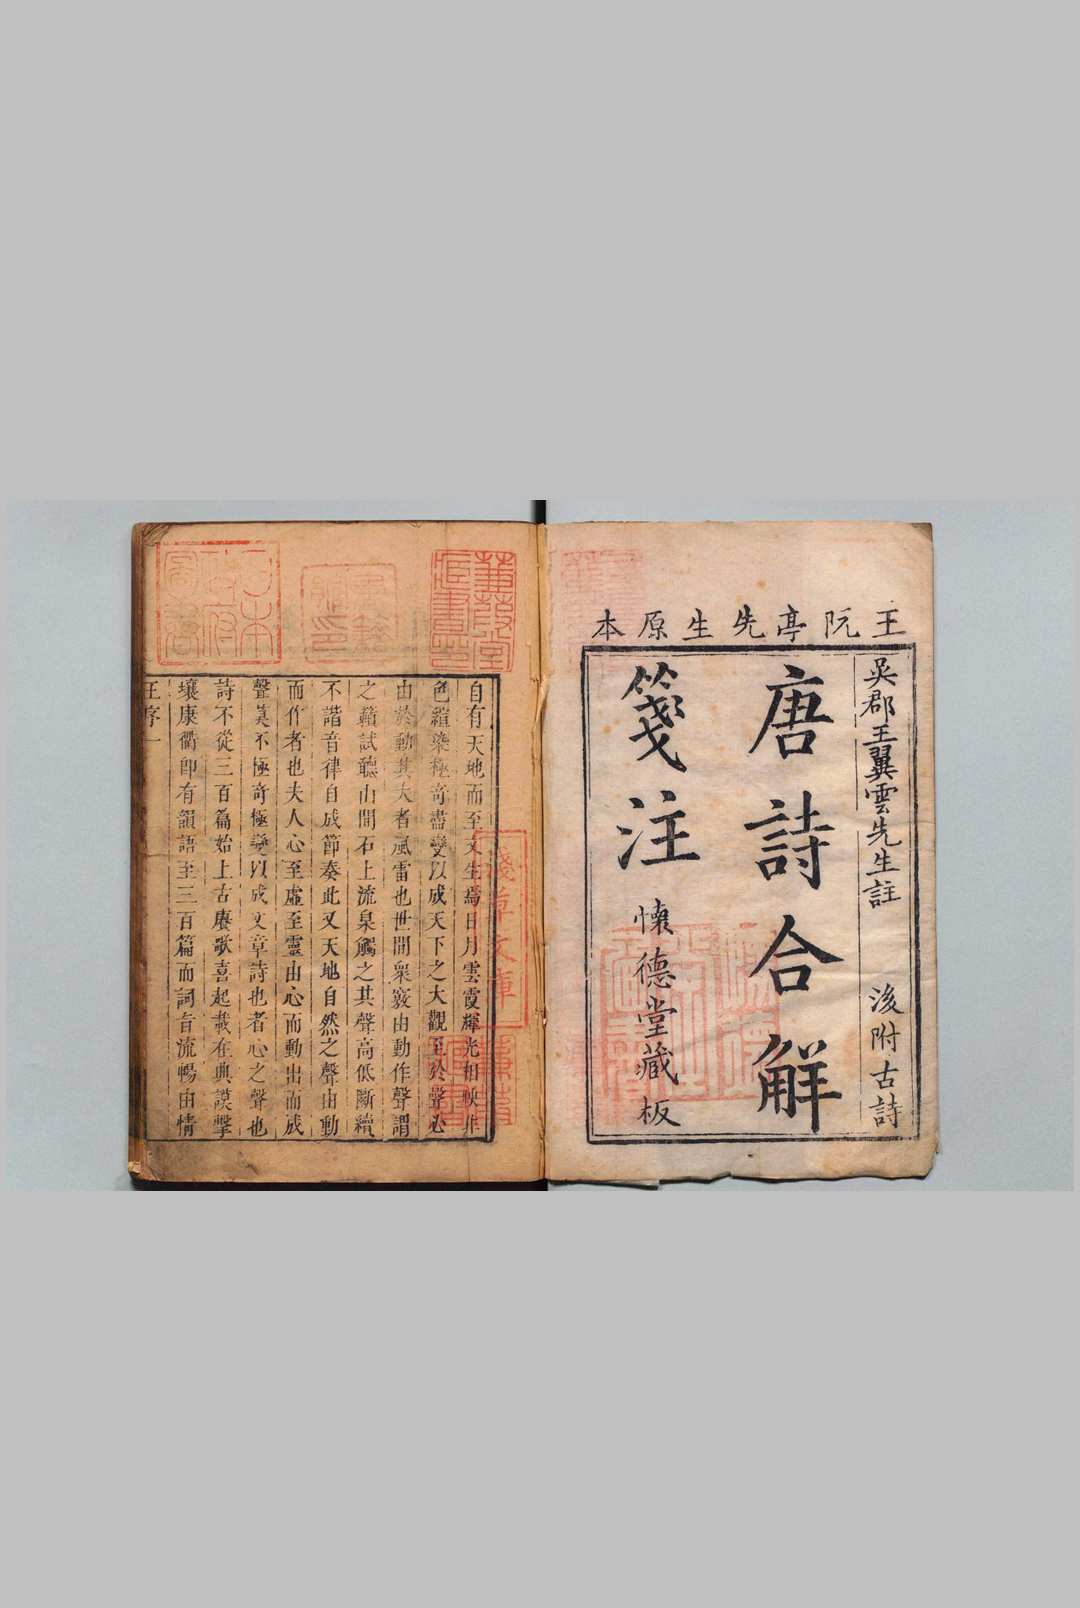 王阮亭先生原本
吳郡王翼雲先生註　後附古詩
唐詩合解
箋注
懷德堂藏板
蒹葭堂
藏書印
日本
政府
圖書
淺草文庫
自有天地而至文生焉日月雲霞輝光相映作
色絢染極奇盡變以成天下之大觀至於聲必
由於動其大者風雷也世間衆竅由動作聲謂
之籟試聽山間石上流泉觸之其聲高低斷續
不諧音律自成節奏此又天地自然之聲由動
而作者也夫人心至虛至靈由心而動出而成
聲莫不極奇極變以成文章詩也者心之聲也
詩不從三百篇始上古賡歌喜起載在典謨擊
壤康衢卽有韻語至三百篇而詞旨流暢由情
王序一